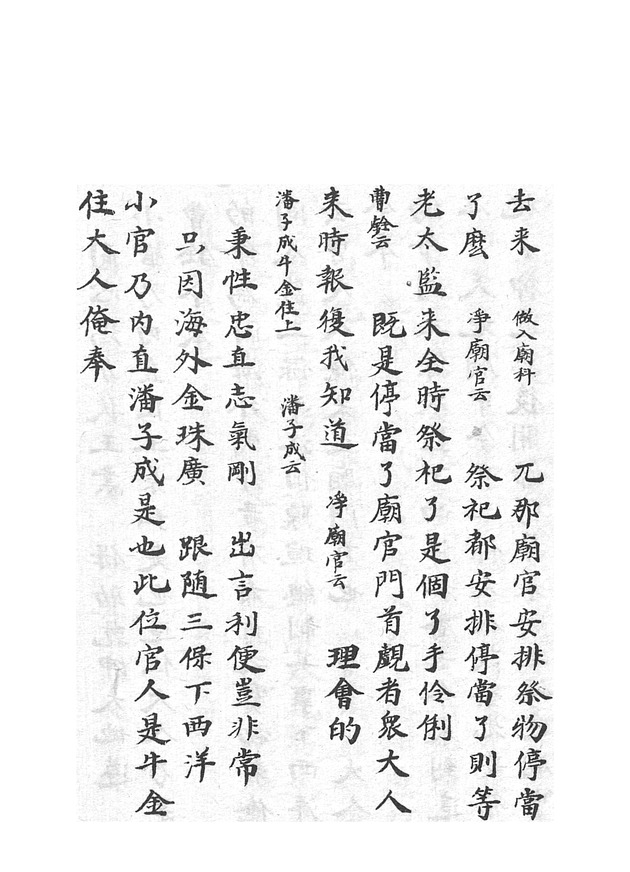 去来　做入廟科　兀那廟官安排祭物停當
了麽　净廟官云　祭祀都安排停當了則等
老太監来全時祭祀了是個了手伶俐
曹㕘云　既是停當了廟官門首覷者衆大人
来時報復我知道　净廟官云　理會的
潘子成牛金住上　潘子成云
秉性忠直志氣剛　出言利便豈非常
只因海外金珠廣　跟随三保下西洋
小官乃内直潘子成是也此位官人是牛金
住大人俺奉